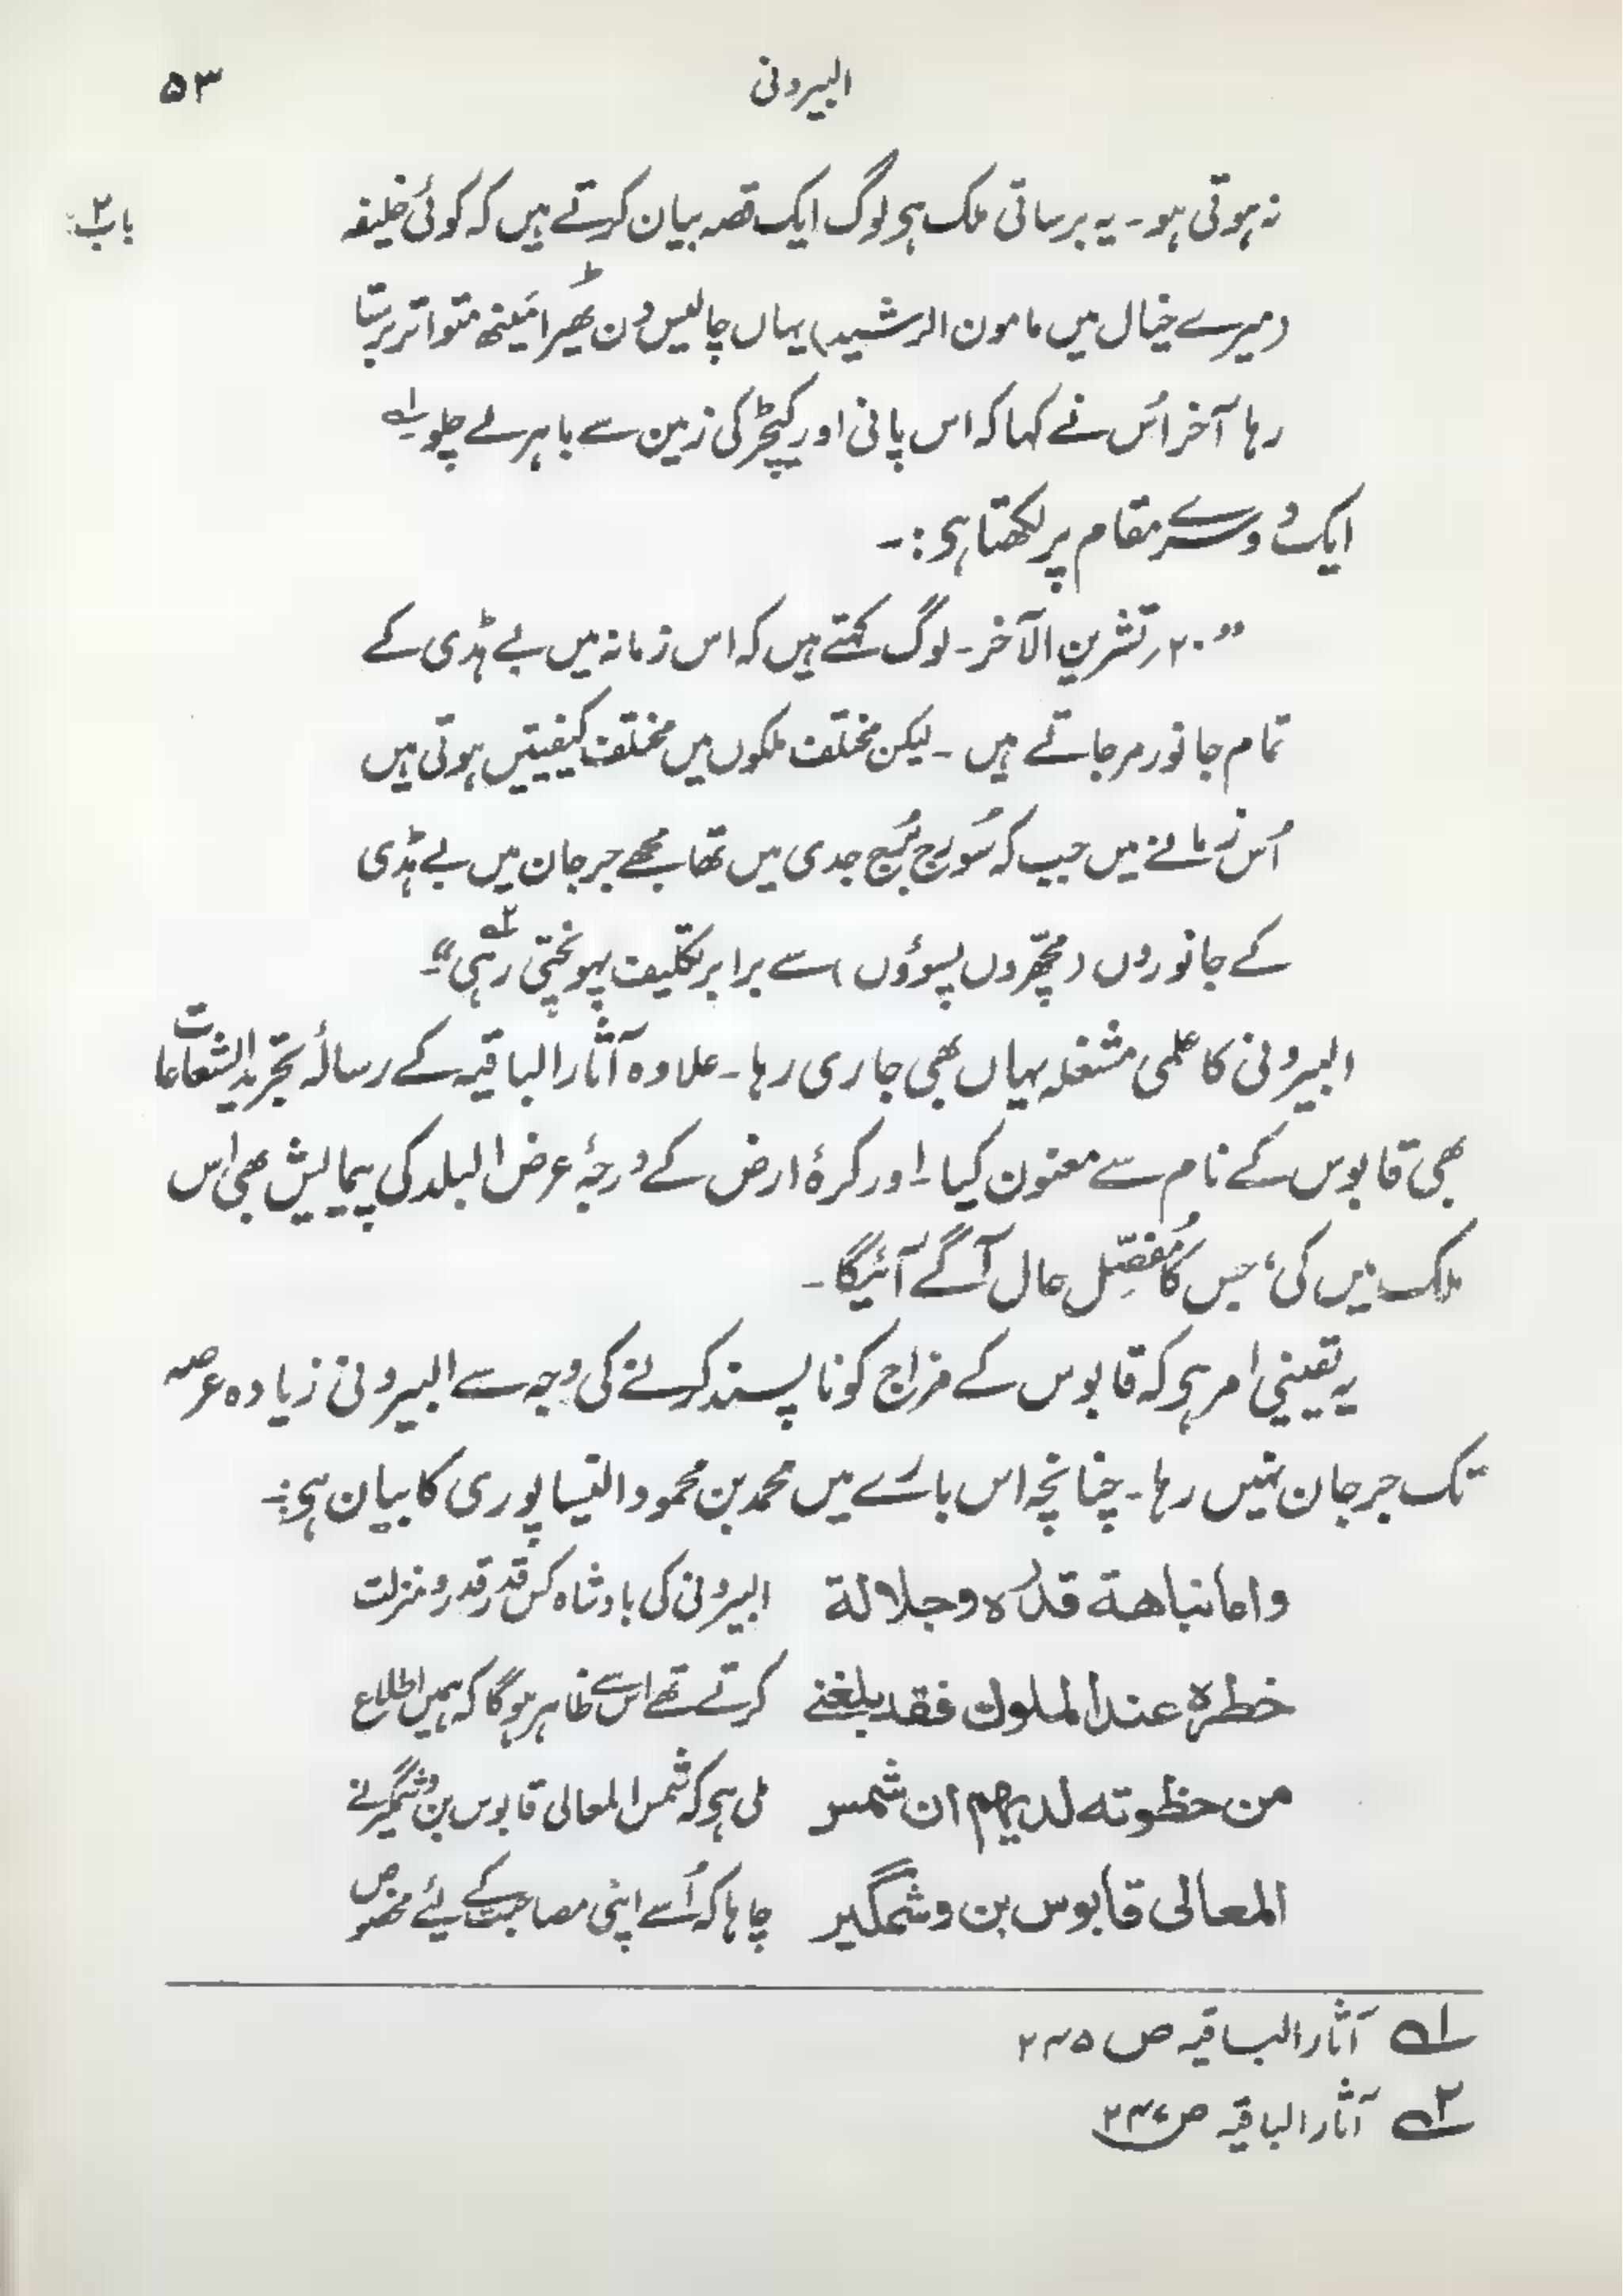 البیرونی ۵۳
باب ۲
نہ ہوتی ہو۔ یہ برساتی ملک ہی لوگ ایک قصہ بیان کرتے ہیں کہ کوئی خلیفہ
(میرے خیال میں مامون الرشید) یہاں چالیس دن ٹھیرا مَینھ متواتر برستا
رہا آخر اُس نے کہا کہ اس پانی اور کیچڑ کی زمین سے باہر لے چلو۔ ؎۱
ایک دوسرے مقام پر لکھتا ہی:۔
”۲۰؍ تشرین الآخر۔ لوگ کہتے ہیں کہ اس زمانہ میں بے ہڈی کے
تمام جانور مرجاتے ہیں ۔ لیکن مختلف ملکوں میں مختلف کیفیتیں ہوتی ہیں
اُس زمانے میں جب کہ سُورج بُرج جدی میں تھا مجھے جرجان میں بے ہڈی
کے جانوروں (مچھّروں پسوؤں) سے برابر تکلیف پہونچتی رہی؎۲“۔
البیرونی کا علمی مشغلہ یہاں بھی جاری رہا۔ علاوہ آثار الباقیہ کے رسالۂ تجرید الشعاعات
بھی قابوس کے نام سے معنون کیا۔ اور کرۂ ارض کے درجۂ عرض البلد کی پیمایش بھی اس
ملک میں کی، جس کا مُفصِّل حال آگے آئیگا۔
یہ یقینی امر ہی کہ قابوس کے مزاج کو ناپسند کرنے کی وجہ سے البیرونی زیادہ عرصہ
تک جرجان نہیں رہا۔ چنانچہ اس بارے میں محمد بن محمود النیساپوری کا بیان ہی:۔
واما نباھة قدرہ وجلالة
خطرہ عند الملوك فقد بلغنے
من حظوته لدیهم ان شمس
المعالی قابوس بن وشمگیر
البیرونی کی بادشاہ کس قدر قدر و منزلت
کرتے تھے اس سے ظاہر ہوگا کہ ہمیں اطلاع
ملی ہی کہ شمس المعالی قابوس بن وشمگیر نے
چاہا کہ اُسے اپنی مصاحبت کے لئے مخصوص
؎۱ آثار الباقیہ ص ۲۴۵
؎۲ آثار الباقیہ ص ۲۴۷